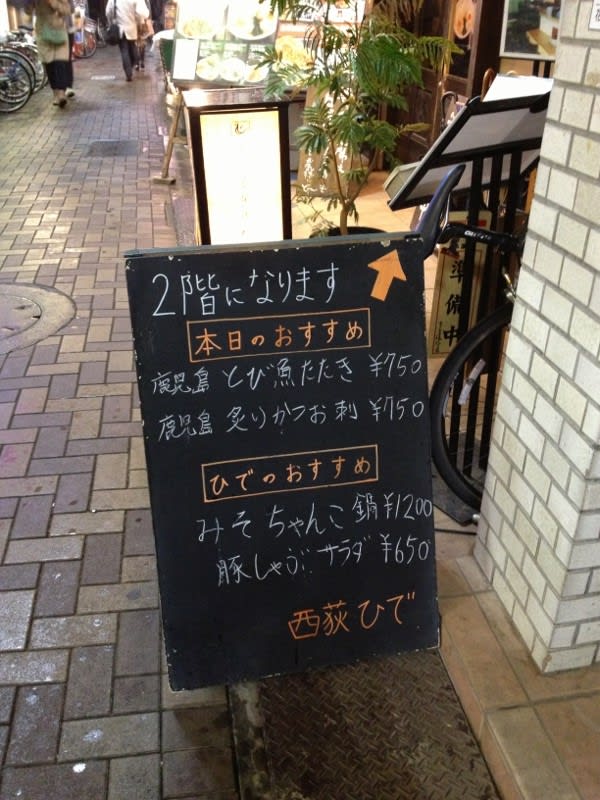 2階になります
本日のおすすめ
鹿児島 とび魚たたき ¥750
鹿児島 炙りかつお刺 ¥750
ひでのおすすめ
みそちゃんこ鍋 ¥1200
豚しゃぶサラダ ¥650
西荻ひで
準備中